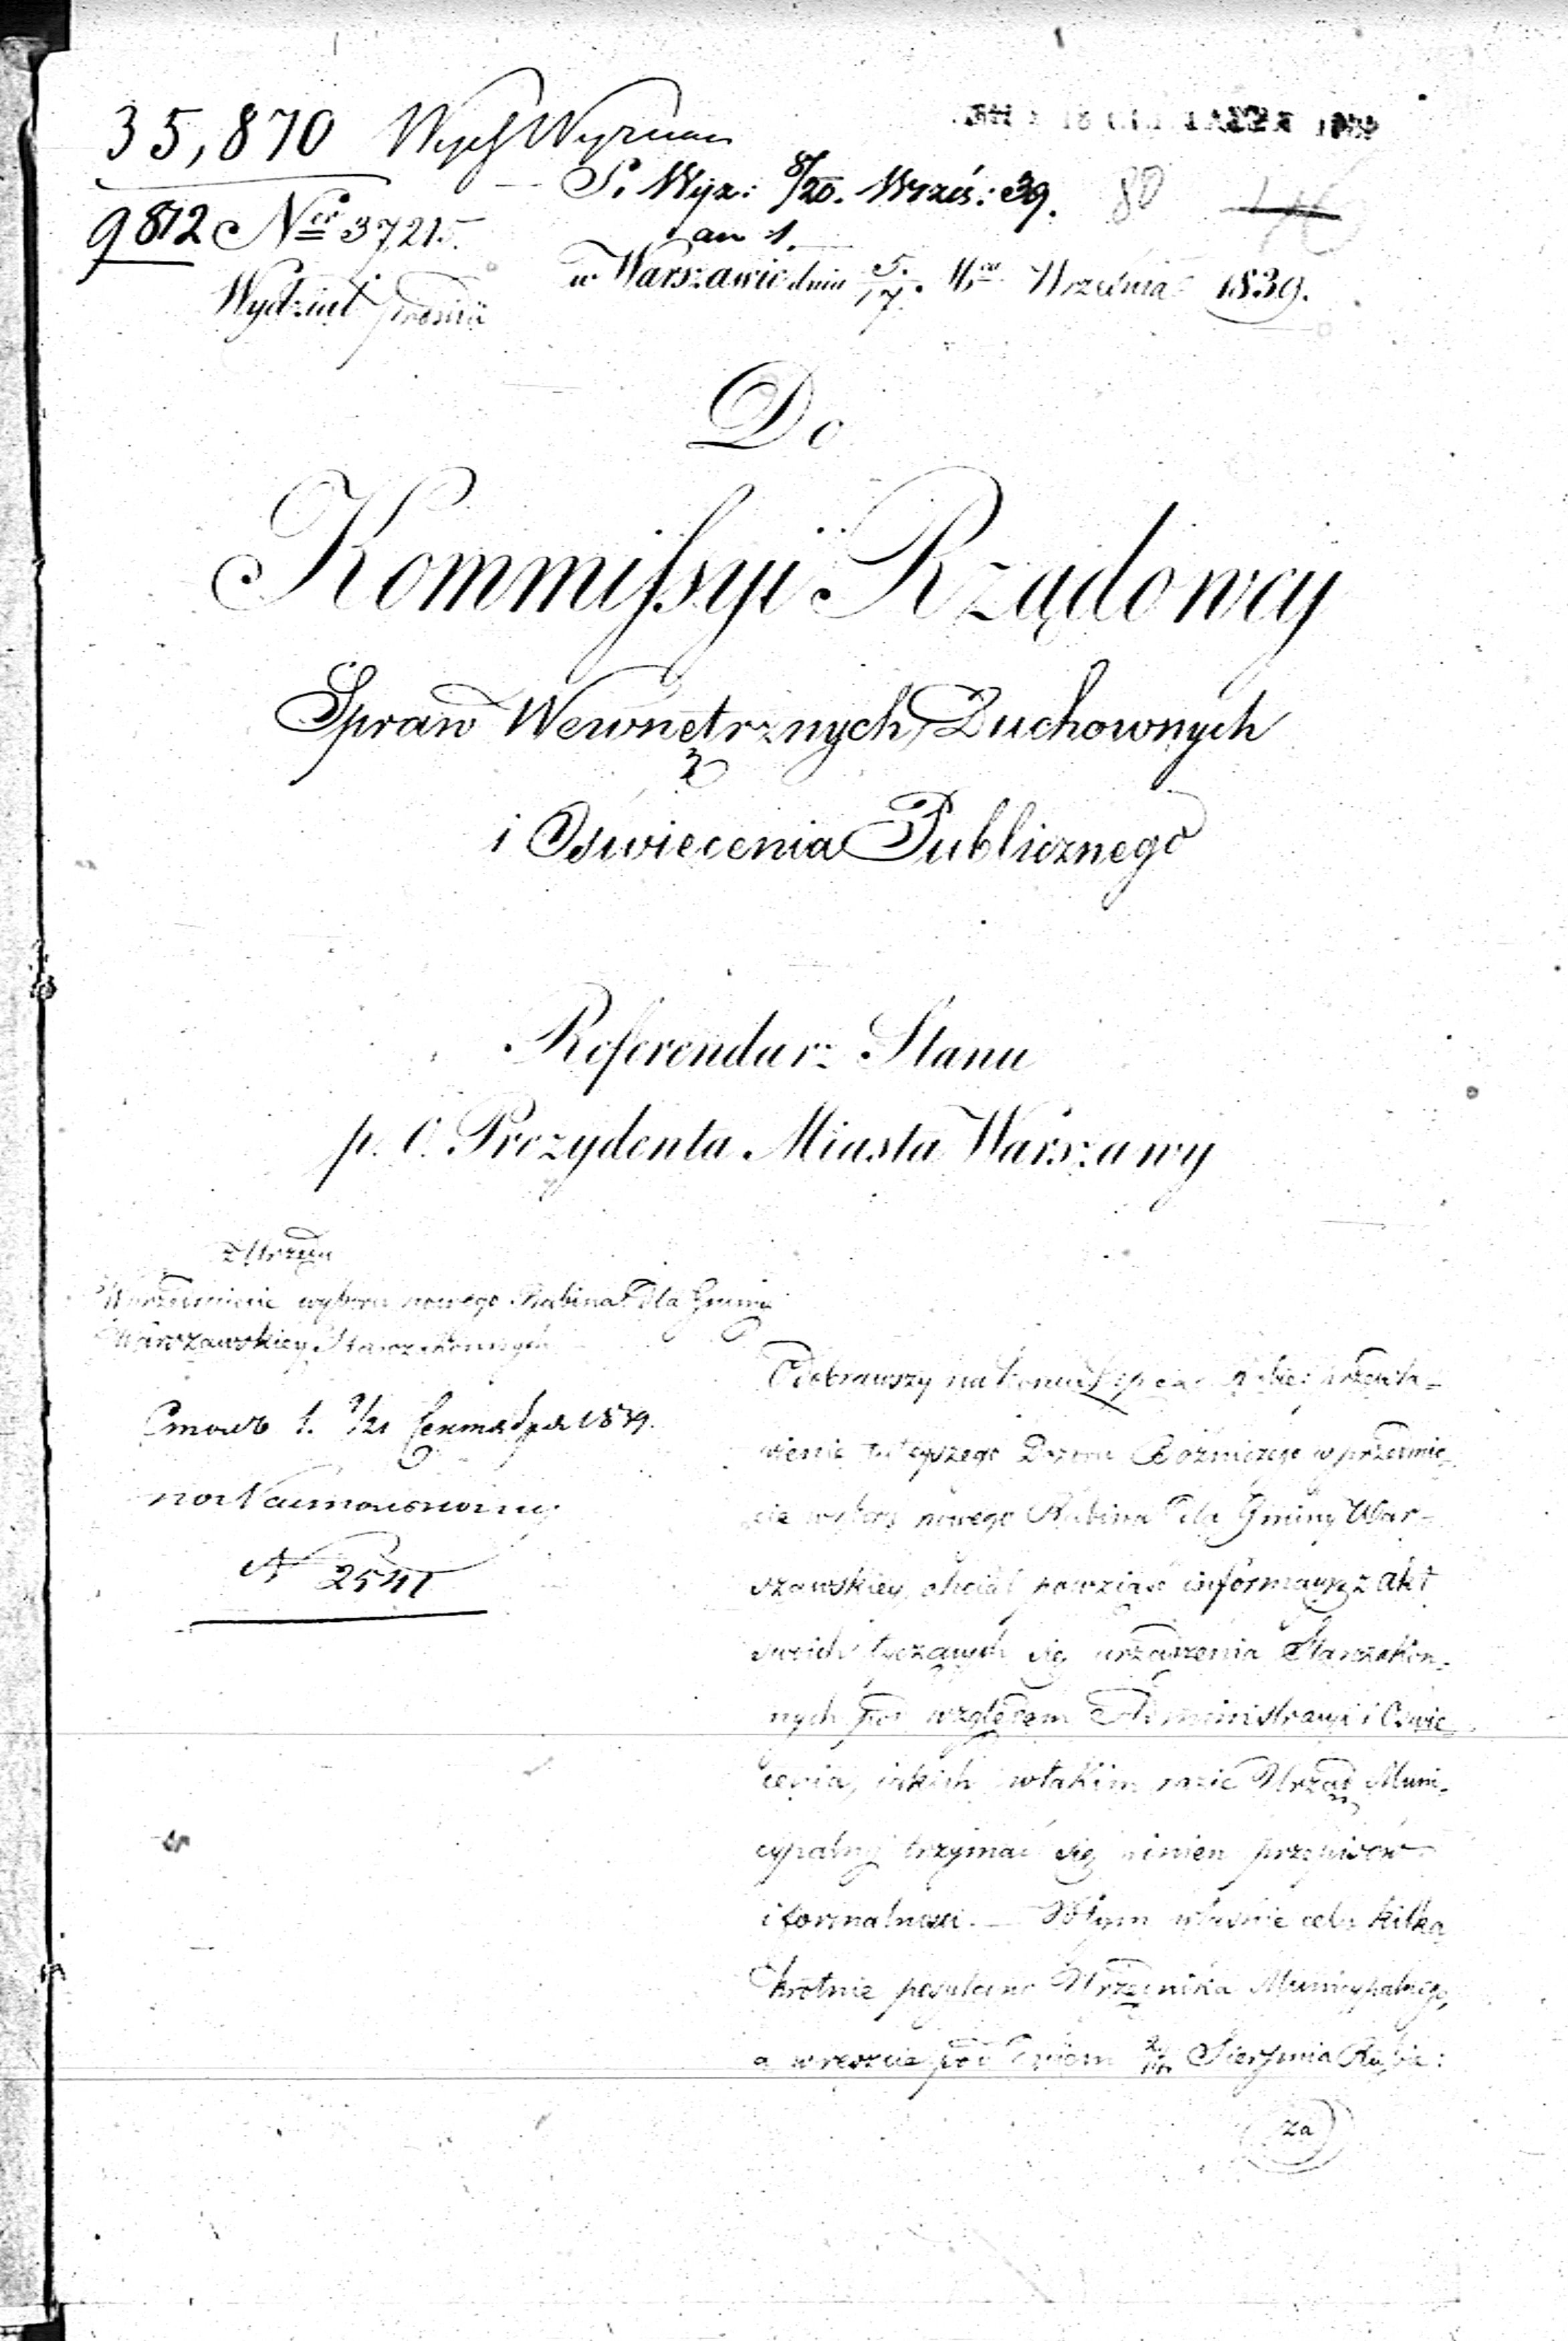 35,870
S. Wyz: 8/20. Wrześ: 39. 80
9812 Nro 37215.
an 1.
w Warszawie dnia 5/17. Mca Września 1839.
Wydział
Do
Kommissyi Rządowey
Spraw Wewnętrznych Duchownych
i Oświecenia Publicznego
Referendarz Stanu
p. O. Prezydenta Miasta Warszawy
wyboru nowego Rabina dla Gminy
Warszawskiey Starozakonnych
1. 9/21 Сентября 1839.
N 2541
Odebrawszy
tuteyszego Dozoru Bóżniczego w przedmio-
cie wyboru nowego Rabina dla Gminy War-
szawskiey, chciał powziąć informacyą z akt
swoich tyczących się urządzenia Starozakon-
nych pod względem Administracyi i Oswie-
cenia, jakich w takim razie Urząd Muni-
cypalny trzymać się winien przepisów
i formalności. — W tym właśnie celu kilka
krotnie Urzędnika Municypalnego,
a wreszcie pod dniem Sierpnia
za